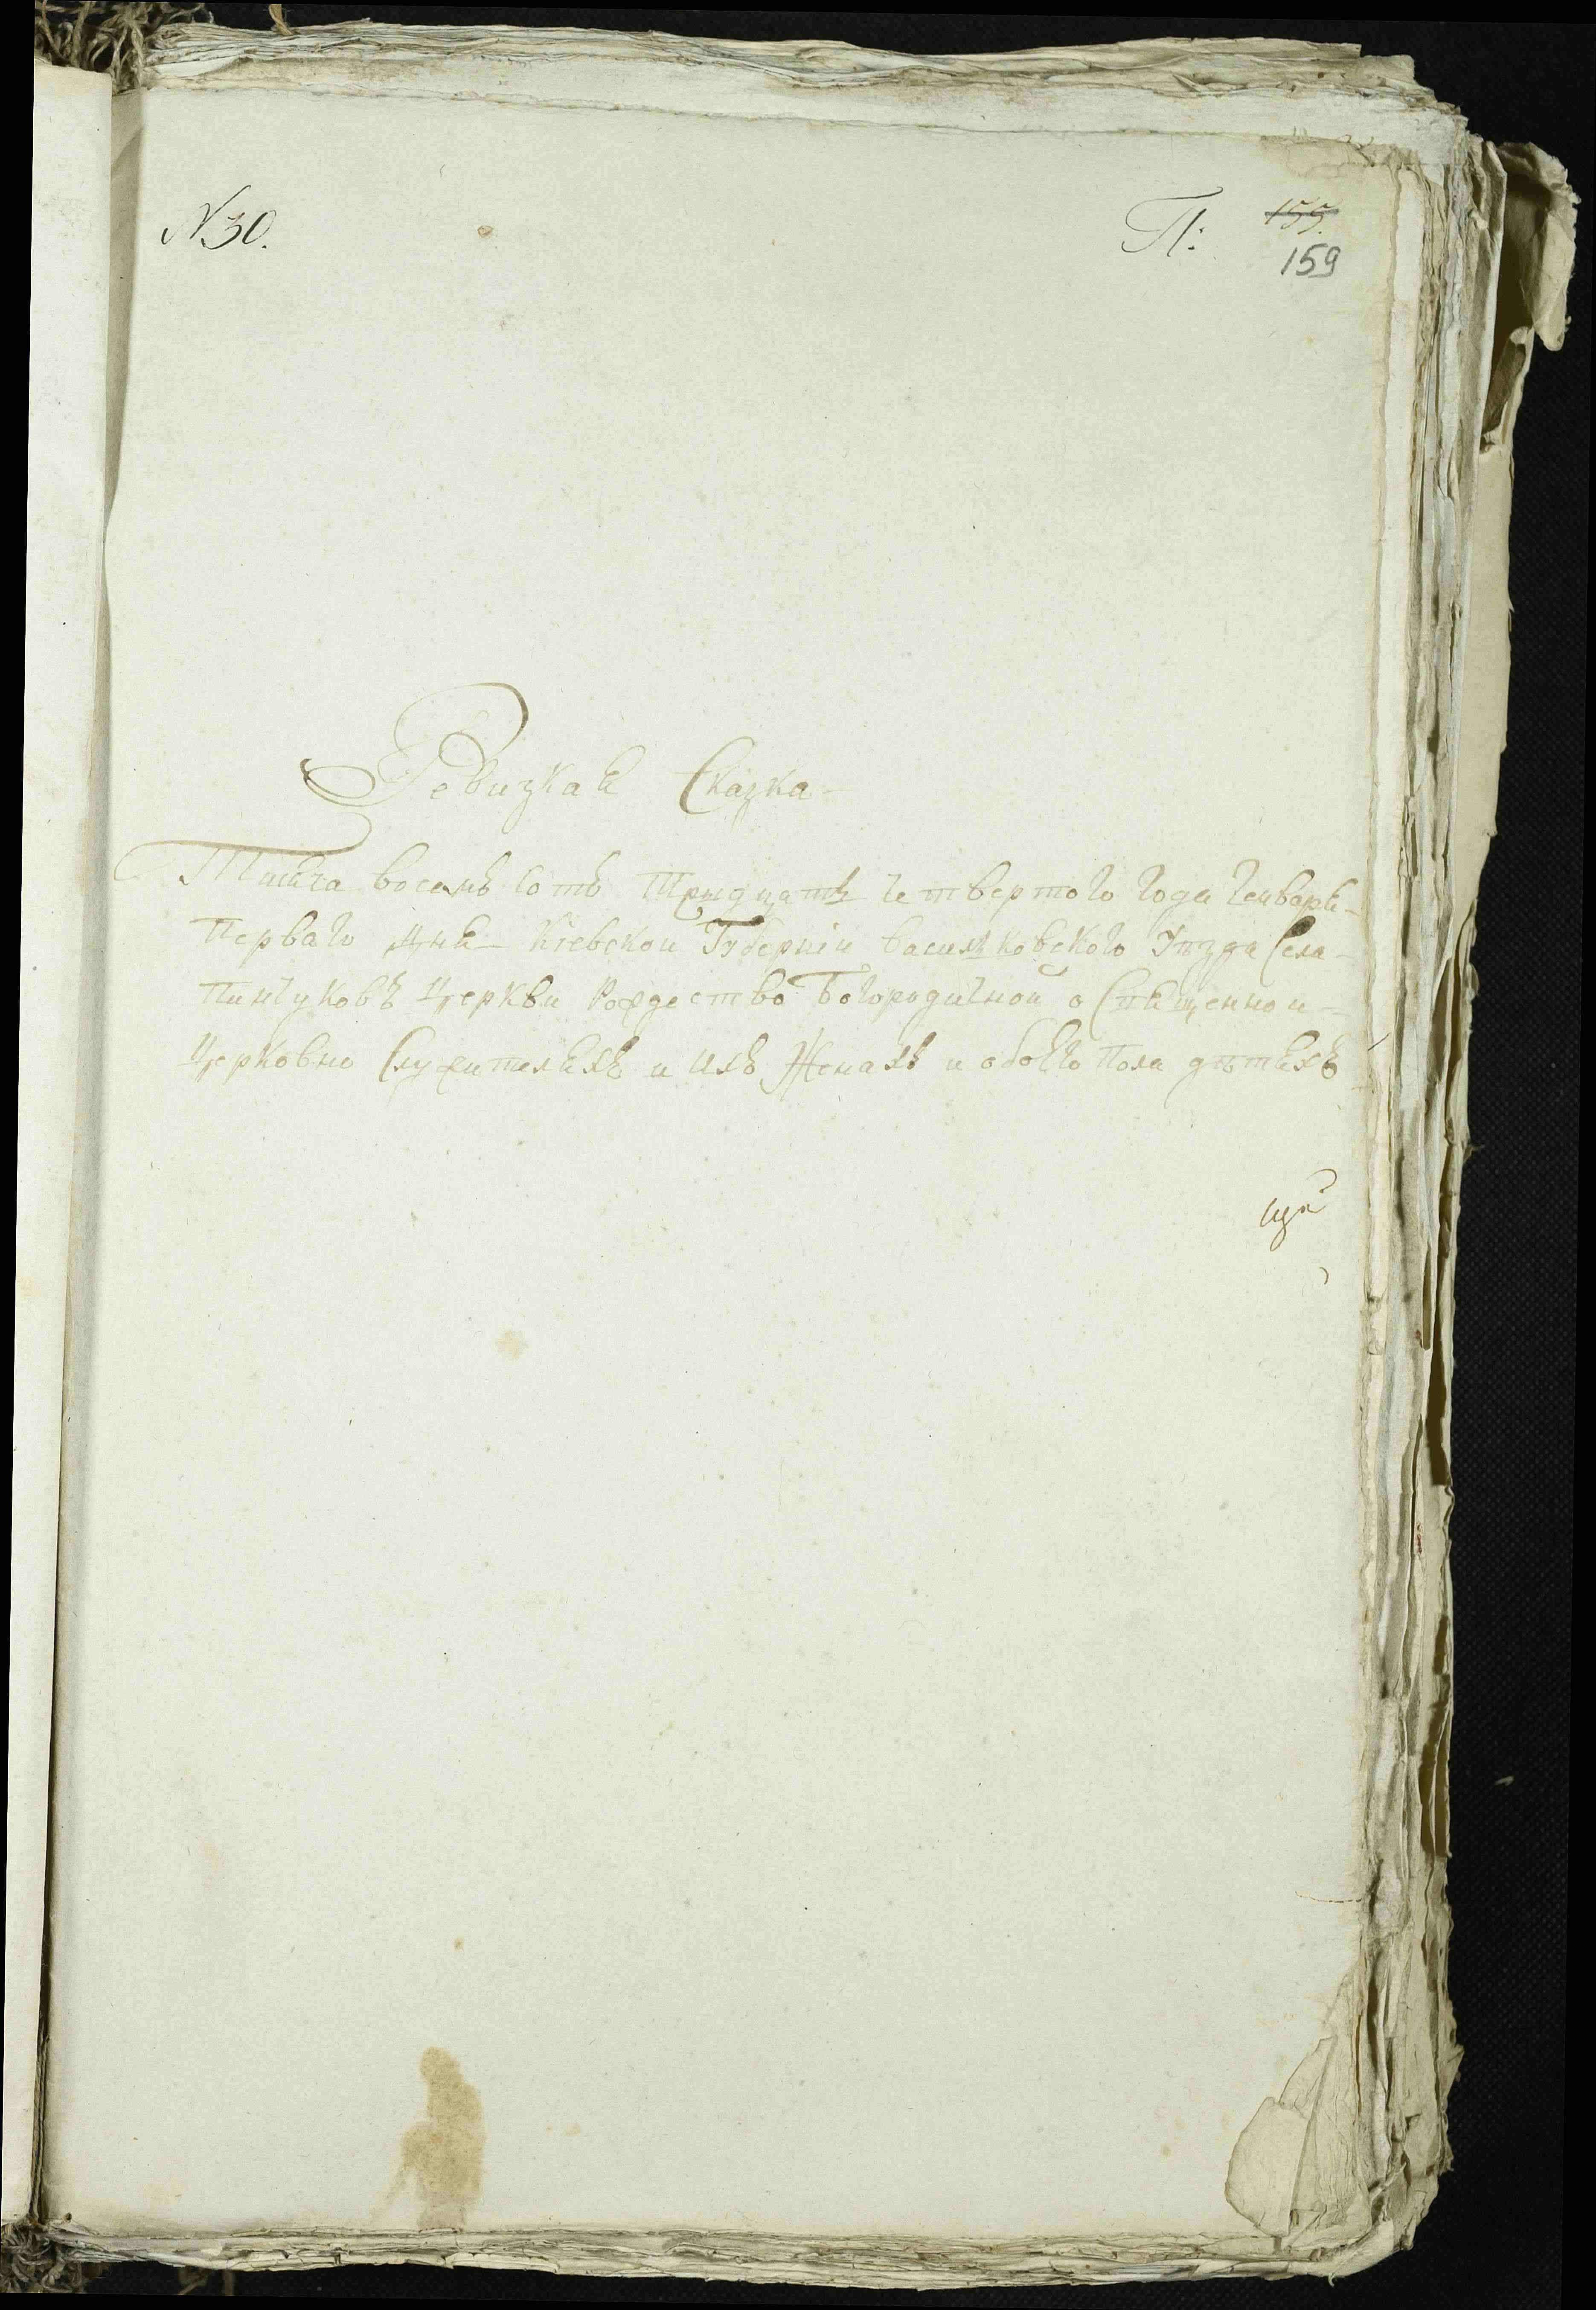 N 30.
П: 155.
159
Ревизкая Сказка
Тысяча восемь сотъ Тридцать четвертого года генваря
Перваго дня Кіевской Губерніи Васильковского Уѣзда Села
Пинчуковъ Церкви Рождество Богородичной о Священно и
Церковно Служителяхъ и ихъ Женахъ и обоего Пола дѣтяхъ